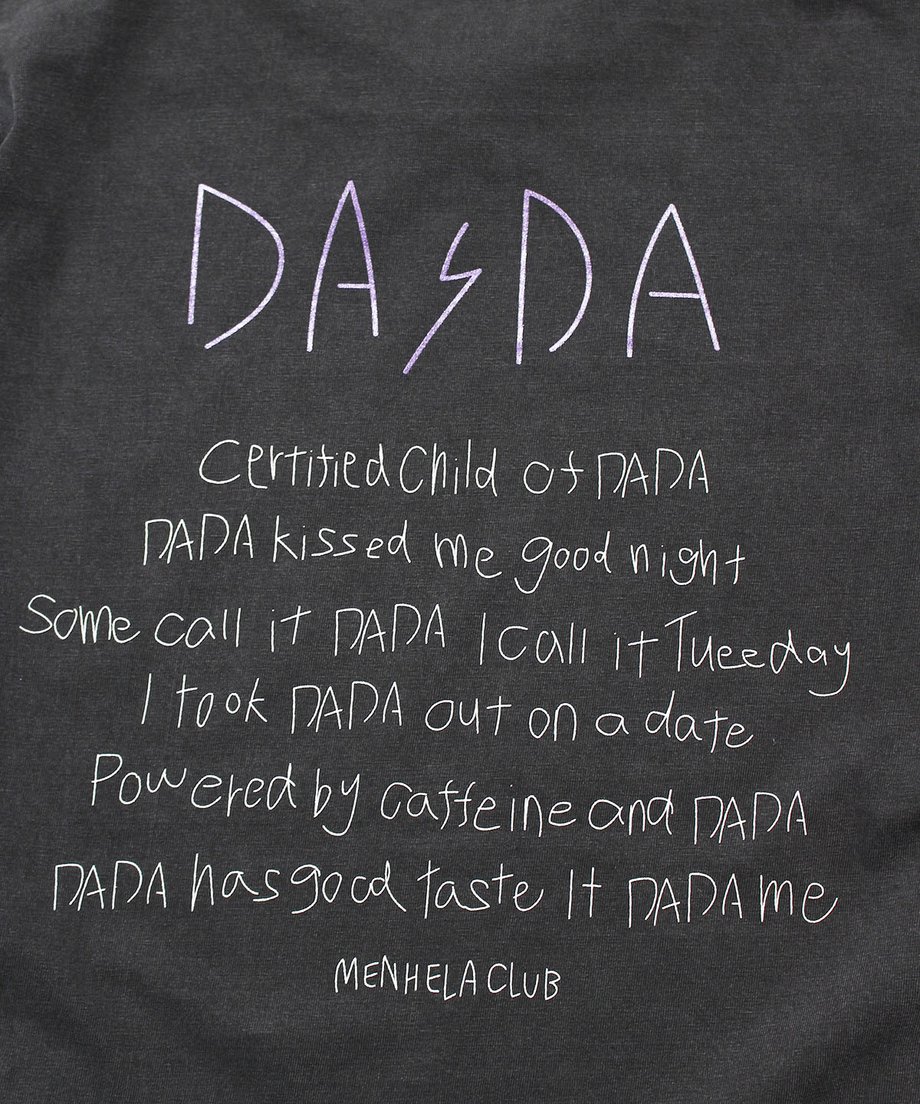 DA⚡DA
Certified Child of DADA
DADA kissed me good night
Some call it DADA I call it Tueeday
I took DADA out on a date
Powered by caffeine and DADA
DADA has good taste It DADA me
MENHELA CLUB